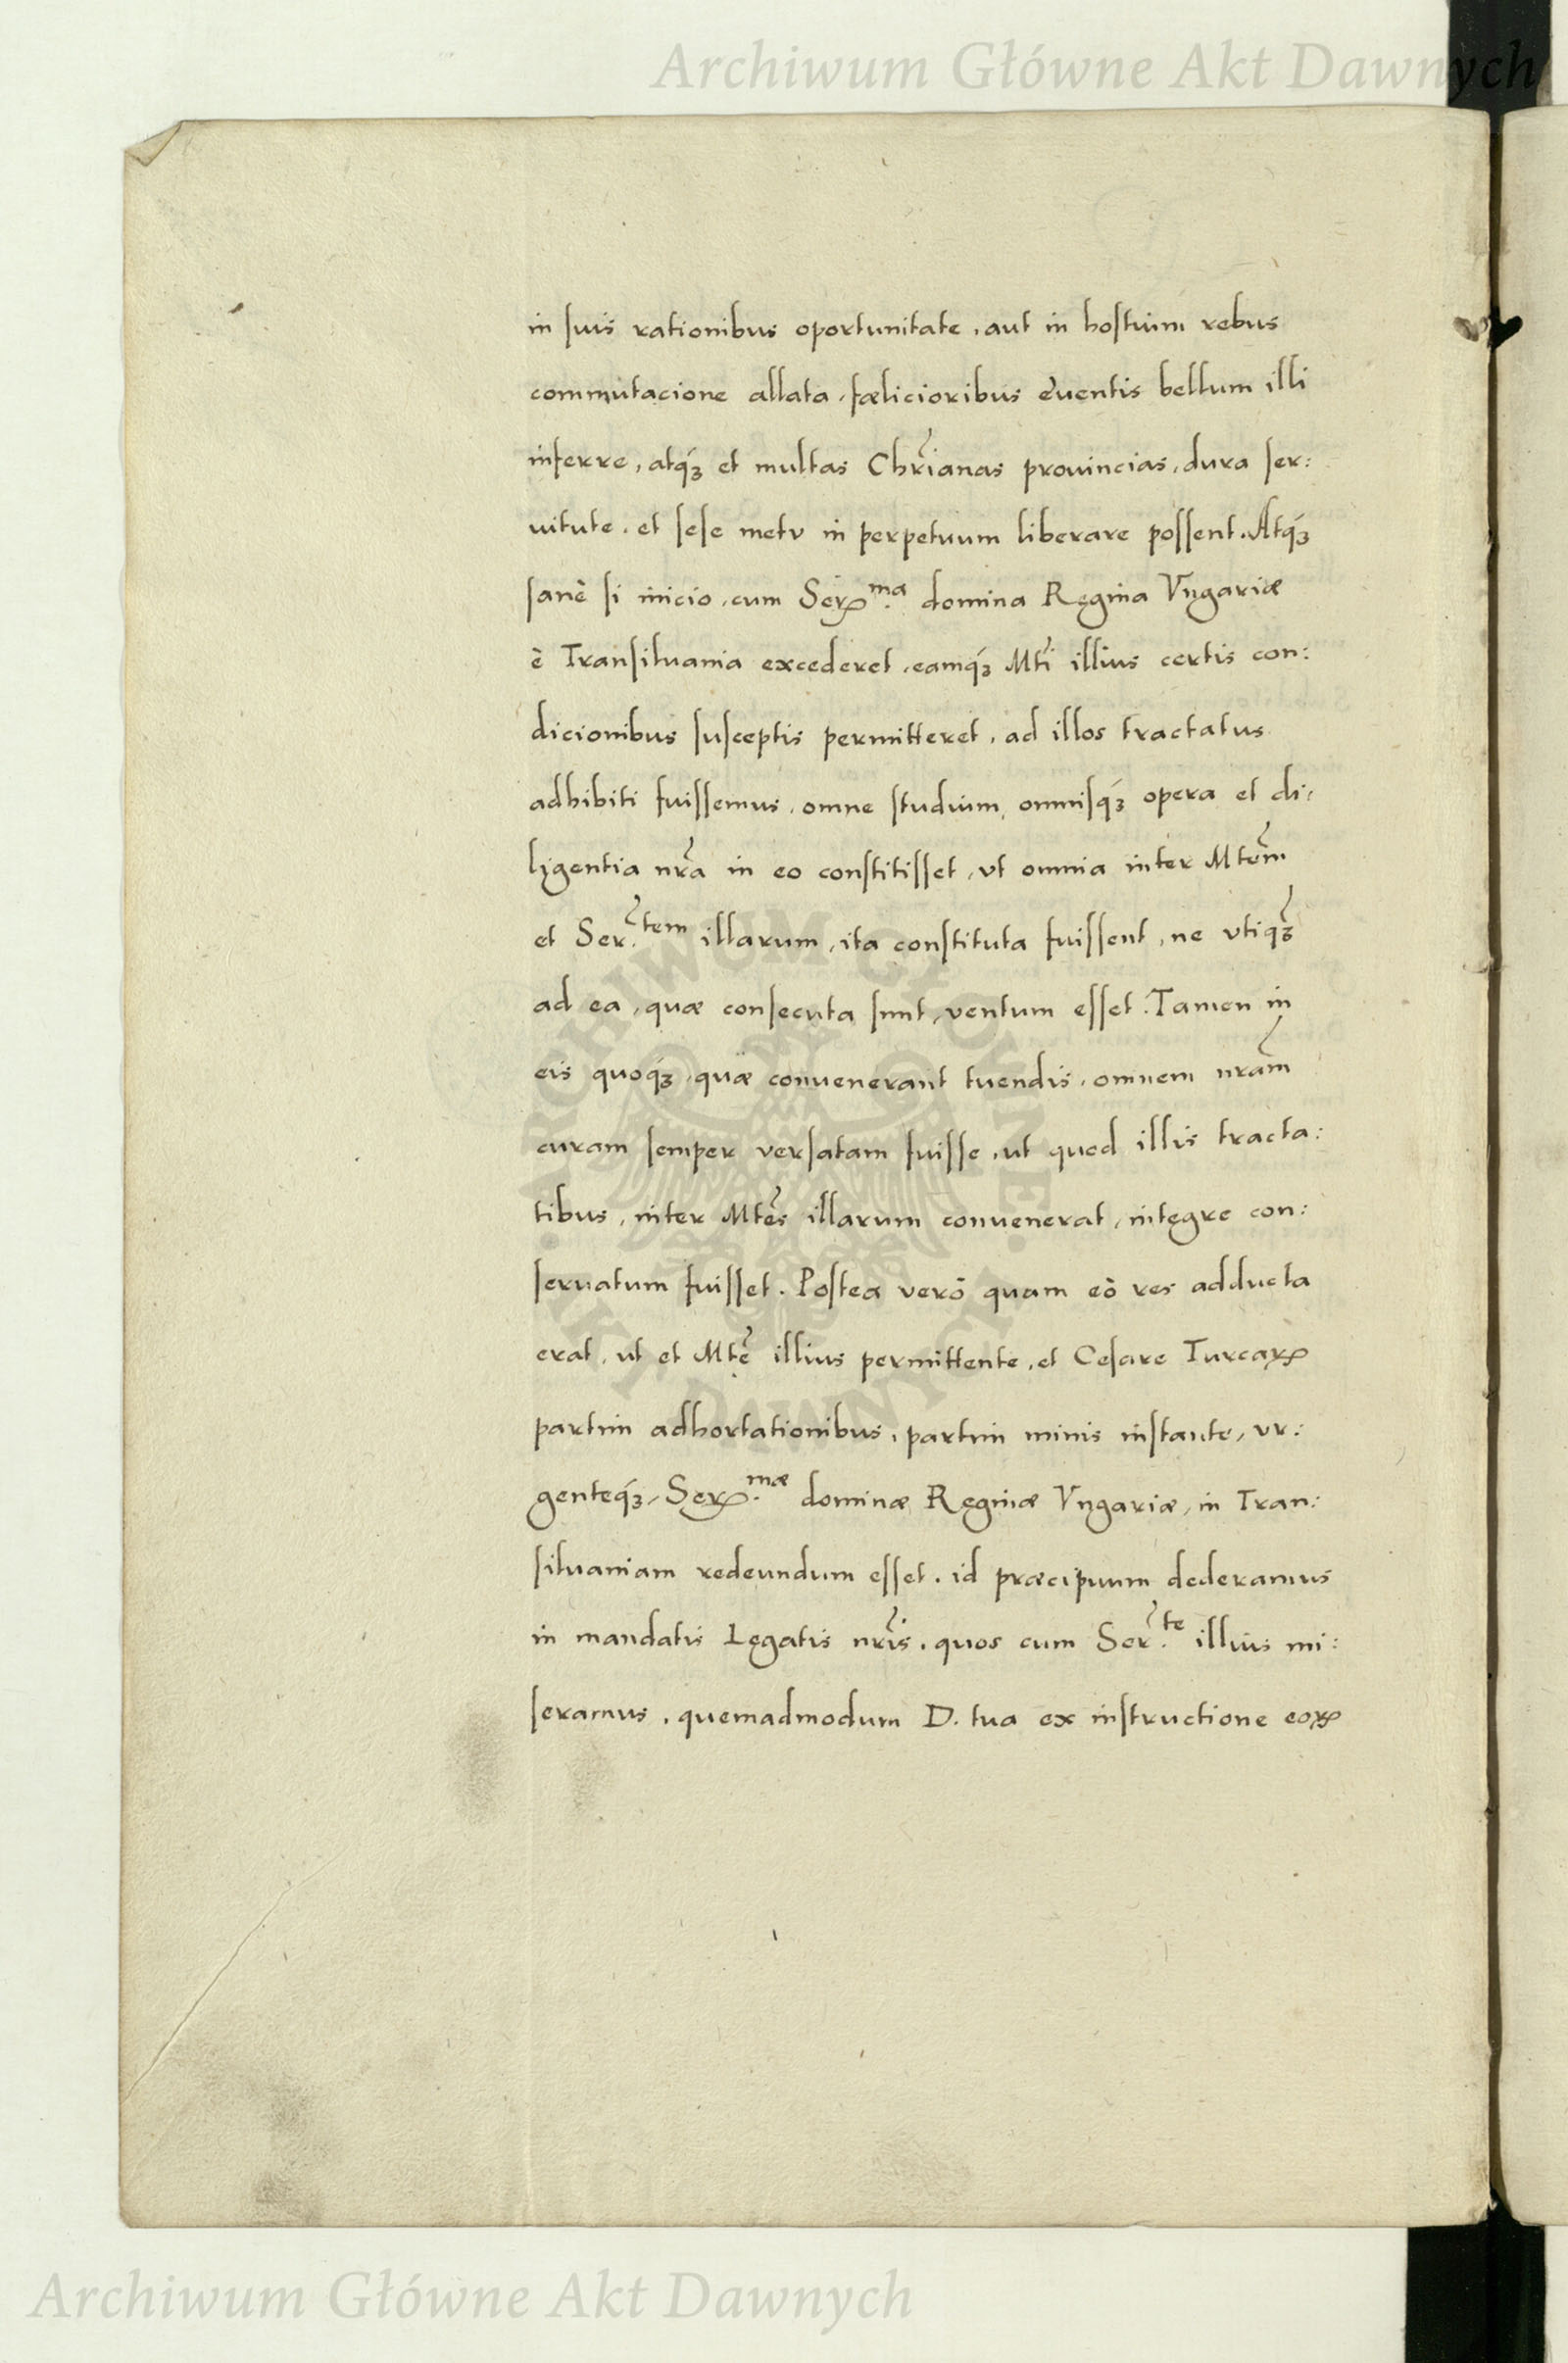 Archiwum Główne Akt Dawnych
in ſuis rationibus oportunitate, aut in hoſtium rebus
commutacione allata, fœlicioribus euentis bellum illi
inferre, atq́ꝫ et multas Chr̃ianas prouincias, dura ſer:
uitute, et ſeſe metu in perpetuum liberare poſſent. Atq́ꝫ
ſanè ſi inicio, cum Serꝝ.ma domina Regina Vngariæ
è Tranſiluania excederet, eamq́ꝫ Mt̃i illius certis con:
dicionibus ſuſceptis permitteret, ad illos tractatus
adhibiti fuiſſemus, omne ſtudium, omniſq́ꝫ opera et di:
ligentia nr̃a in eo conſtitiſſet, vt omnia inter Mtẽm
et Ser̃.tem illarum, ita conſtituta fuiſſent, ne vtiqꝫ̃
ad ea, quæ conſecuta ſunt, ventum eſſet. Tamen in
eis quoq́ꝫ, quæ conuenerant tuendis, omnem nrãm
curam ſemper verſatam fuiſſe, ut quod illis tracta:
tibus, inter Mtẽs illarum conuenerat, integre con:
ſeruatum fuiſſet. Poſtea verò quam eò res adducta
erat, ut et Mtẽ illius permittente, et Ceſare Turcaꝝ
partim adhortationibus, partim minis inſtante, vr:
genteq́ꝫ, Serꝝ.mæ dominæ Reginæ Vngariæ, in Tran:
ſiluaniam redeundum eſſet. id præcipuum dederamus
in mandatis Legatis nr̃is, quos cum Ser̃.te illius mi:
ſeramus, quemadmodum D. tua ex inſtructione eoꝝ
ARCHIWUM GŁÓWNE
AKT DAWNYCH
Archiwum Główne Akt Dawnych